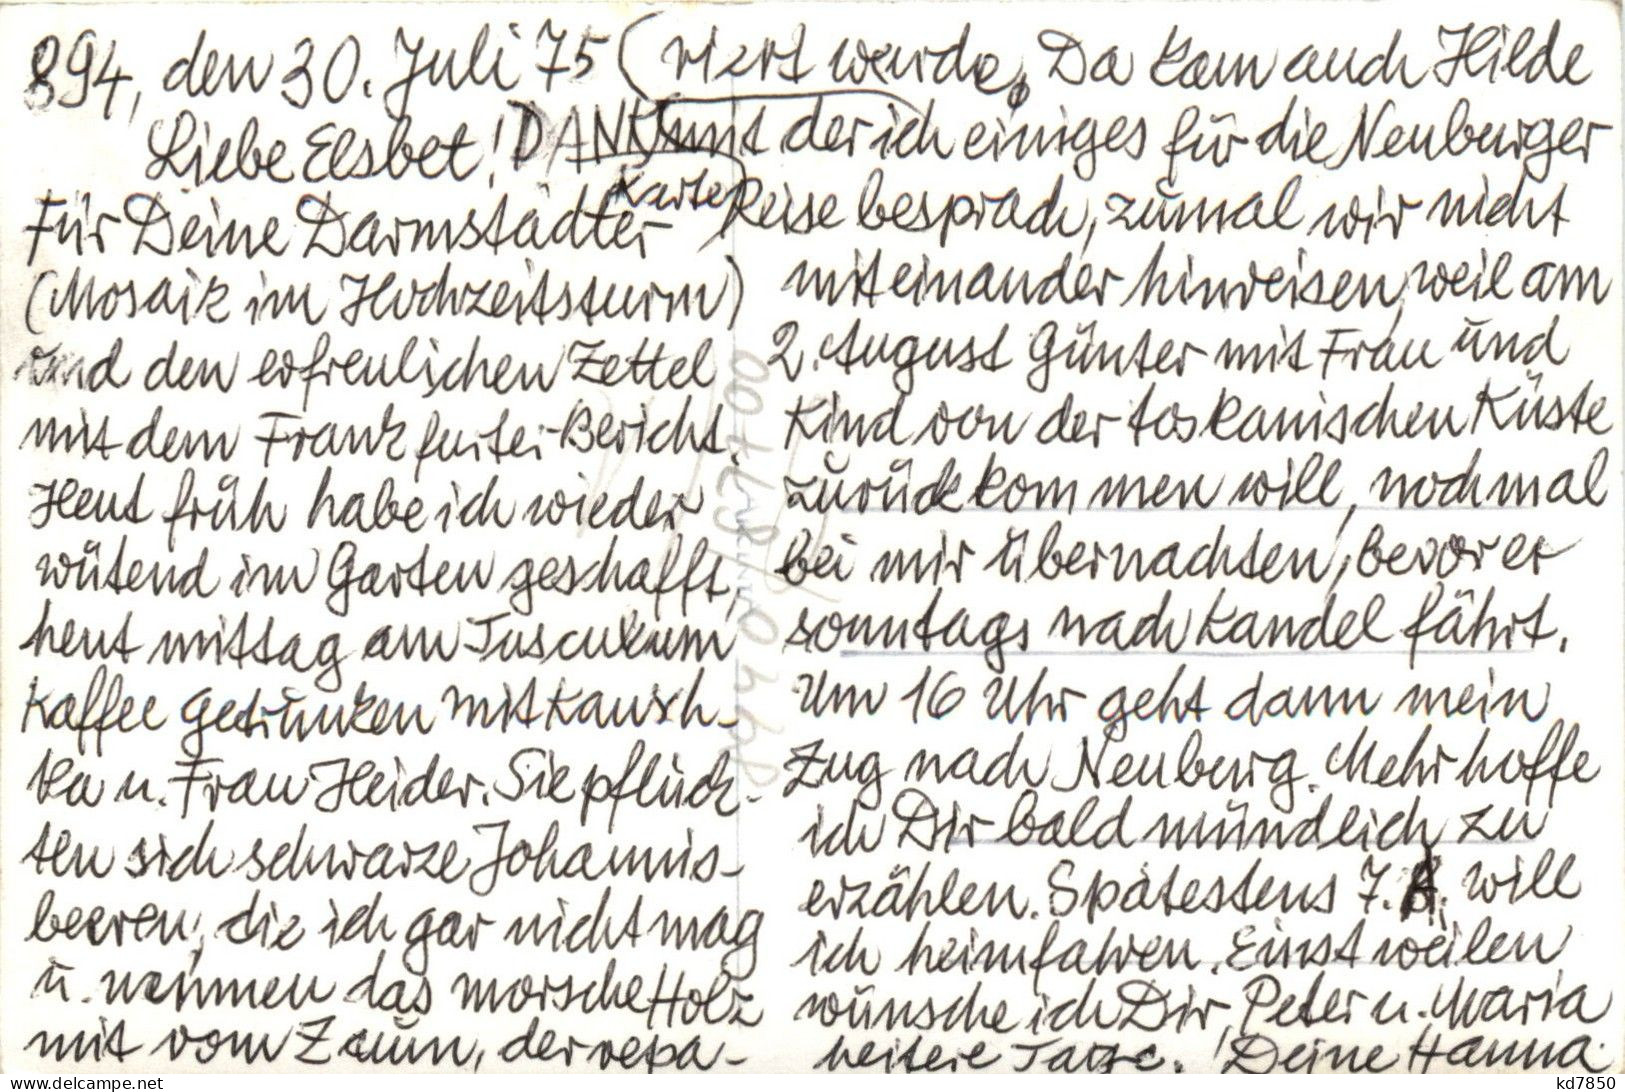 894, den 30. Juli 75
Liebe Elsbet! DANK
Für Deine Darmstädter Karte
(Mosaik im Hochzeitsturm)
und den erfreulichen Zettel
mit dem Frankfurter-Bericht.
Heut früh habe ich wieder
wütend im Garten geschafft,
heut mittag am Tusculum
Kaffee getrunken mit Kausch-
ka u. Frau Heider. Sie pflück-
ten sich schwarze Johannis-
beeren, die ich gar nicht mag
u. nehmen das morsche Holz
mit vom Zaun, der repa-
riert wurde. Da kam auch Hilde
mit der ich einiges für die Neuburger
Reise besprach, zumal wir nicht
miteinander hinreisen, weil am
2. August Günter mit Frau und
Kind von der toskanischen Küste
zurückkommen will, nochmal
bei mir übernachten, bevor er
sonntags nach Kandel fährt.
Um 16 Uhr geht dann mein
Zug nach Neuburg. Mehr hoffe
ich Dir bald mündlich zu
erzählen. Spätestens 7. 8. will
ich heimfahren. Einstweilen
wünsche ich Dir, Peter u. Maria
heitere Tage! Deine Hanna.
kd7850